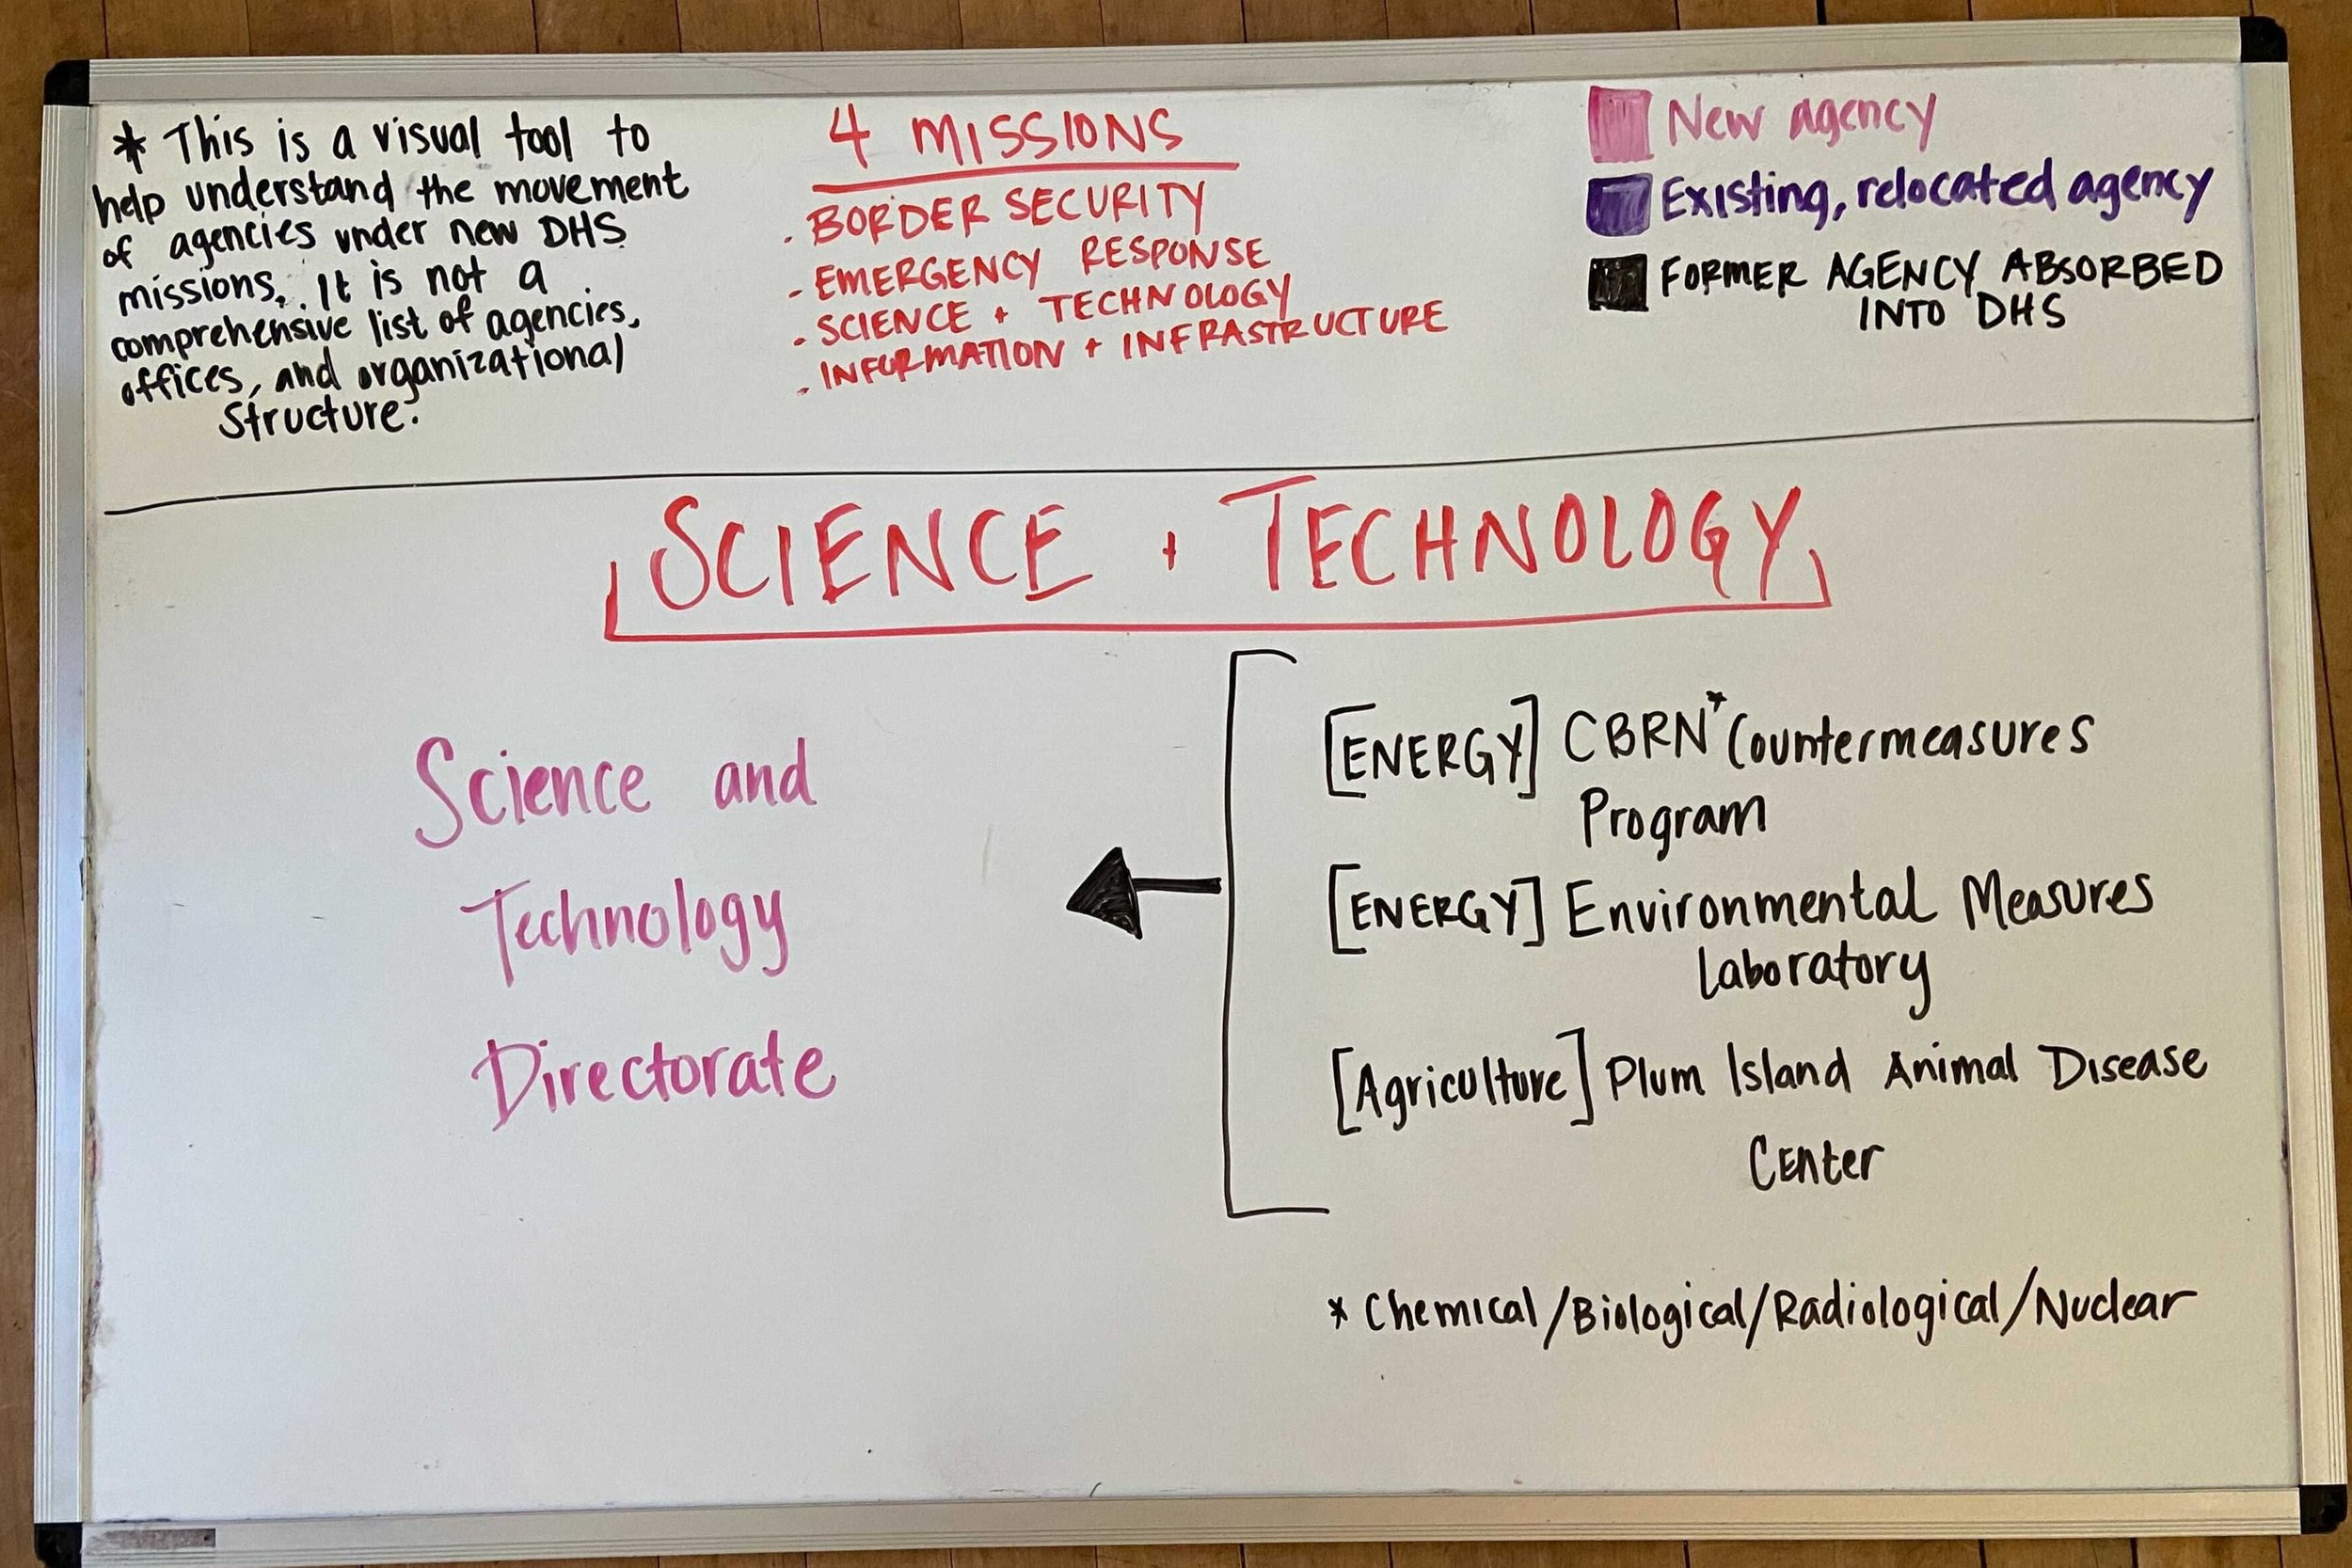 * This is a visual tool to
help understand the movement
of agencies under new DHS
missions. It is not a
comprehensive list of agencies,
offices, and organizational
structure.
4 MISSIONS
. BORDER SECURITY
- EMERGENCY RESPONSE
. SCIENCE + TECHNOLOGY
. INFORMATION + INFRASTRUCTURE
New agency
Existing, relocated agency
FORMER AGENCY ABSORBED
INTO DHS
SCIENCE + TECHNOLOGY
Science and
Technology
Directorate
[ENERGY] CBRN* Countermeasures
Program
[ENERGY] Environmental Measures
Laboratory
[Agriculture] Plum Island Animal Disease
Center
* Chemical/Biological/Radiological/Nuclear